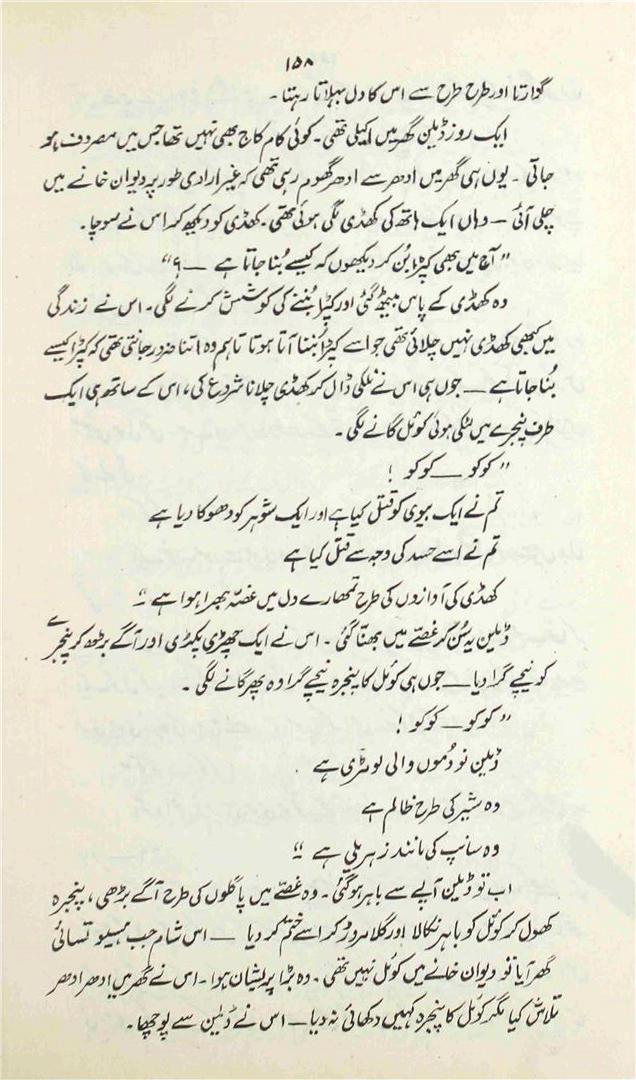 ۱۵۸
گزارتا اور طرح طرح سے اس کا دل بہلاتا رہتا ۔
ایک روز ڈیلین گھر میں اکیلی تھی ۔ کوئی کام کاج بھی نہیں تھا جس میں مصروف ہو
جاتی ۔ یوں ہی گھر میں ادھر سے ادھر گھوم رہی تھی کہ غیر ارادی طور پر دیوان خانے میں
چلی آئی — وہاں ایک ہاتھ کی کھڈی لگی ہوئی تھی ۔ کھڈی کو دیکھ کر اس نے سوچا ۔
" آج میں بھی کپڑا بُن کر دیکھوں کہ کیسے بُنا جاتا ہے — ؟ "
وہ کھڈی کے پاس بیٹھ گئی اور کپڑا بُننے کی کوشش کرنے لگی ۔ اس نے زندگی
میں کبھی کھڈی نہیں چلائی تھی جو اسے کپڑا بُننا آتا ہوتا تاہم وہ اتنا ضرور جانتی تھی کہ کپڑا کیسے
بُنا جاتا ہے — جوں ہی اس نے نلکی ڈال کر کھڈی چلانا شروع کی ، اس کے ساتھ ہی ایک
طرف پنجرے میں لٹکی ہوئی کوئل گانے لگی ۔
" کوکو — کوکو !
تم نے ایک بیوی کو قتل کیا ہے اور ایک شوہر کو دھوکا دیا ہے
تم نے اسے حسد کی وجہ سے قتل کیا ہے
کھڈی کی آوازوں کی طرح تمھارے دل میں غصّہ بھرا ہوا ہے ۔"
ڈیلین یہ سُن کر غصّے میں بھنّا گئی ۔ اس نے ایک چھڑی پکڑی اور آگے بڑھ کر پنجرے
کو نیچے گرا دیا — جوں ہی کوئل کا پنجرہ نیچے گرا وہ پھر گانے لگی ۔
" کوکو — کوکو !
ڈیلین نو دُموں والی لومڑی ہے
وہ شیر کی طرح ظالم ہے
وہ سانپ کی مانند زہریلی ہے ۔"
اب تو ڈیلین آپے سے باہر ہو گئی ۔ وہ غصّے میں پاگلوں کی طرح آگے بڑھی ، پنجرہ
کھول کر کوئل کو باہر نکالا اور گلا مروڑ کر اسے ختم کر دیا — اس شام جب مہسیو تسائی
گھر آیا تو دیوان خانے میں کوئل نہیں تھی ۔ وہ بڑا پریشان ہوا ۔ اس نے گھر میں ادھر ادھر
تلاش کیا مگر کوئل کا پنجرہ کہیں دکھائی نہ دیا — اس نے ڈیلین سے پوچھا ۔